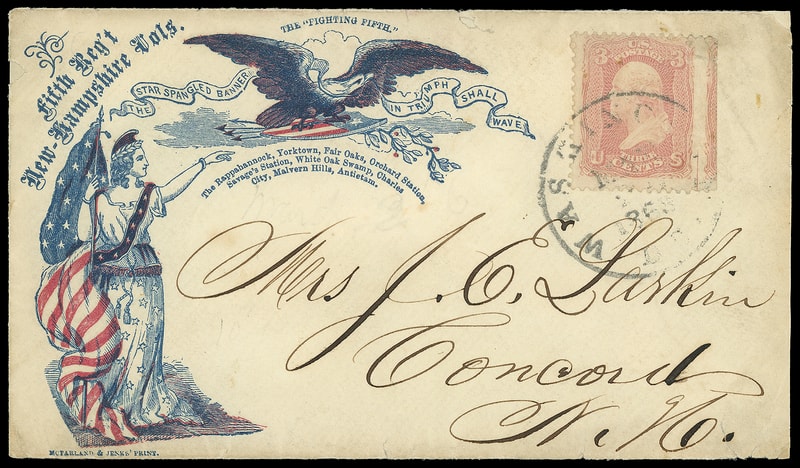 Fifth Reg't
New-Hampshire Vols.
THE "FIGHTING FIFTH."
THE STAR SPANGLED BANNER IN TRIUMPH SHALL WAVE
The Rappahannock, Yorktown, Fair Oaks, Orchard Station,
Savage's Station, White Oak Swamp, Charles
City, Malvern Hills, Antietam.
3 U.S. 3
POSTAGE
U THREE S
CENTS
WASHING
Mrs J. E. Larkin
Concord
N. H.
MCFARLAND & JENKS' PRINT.